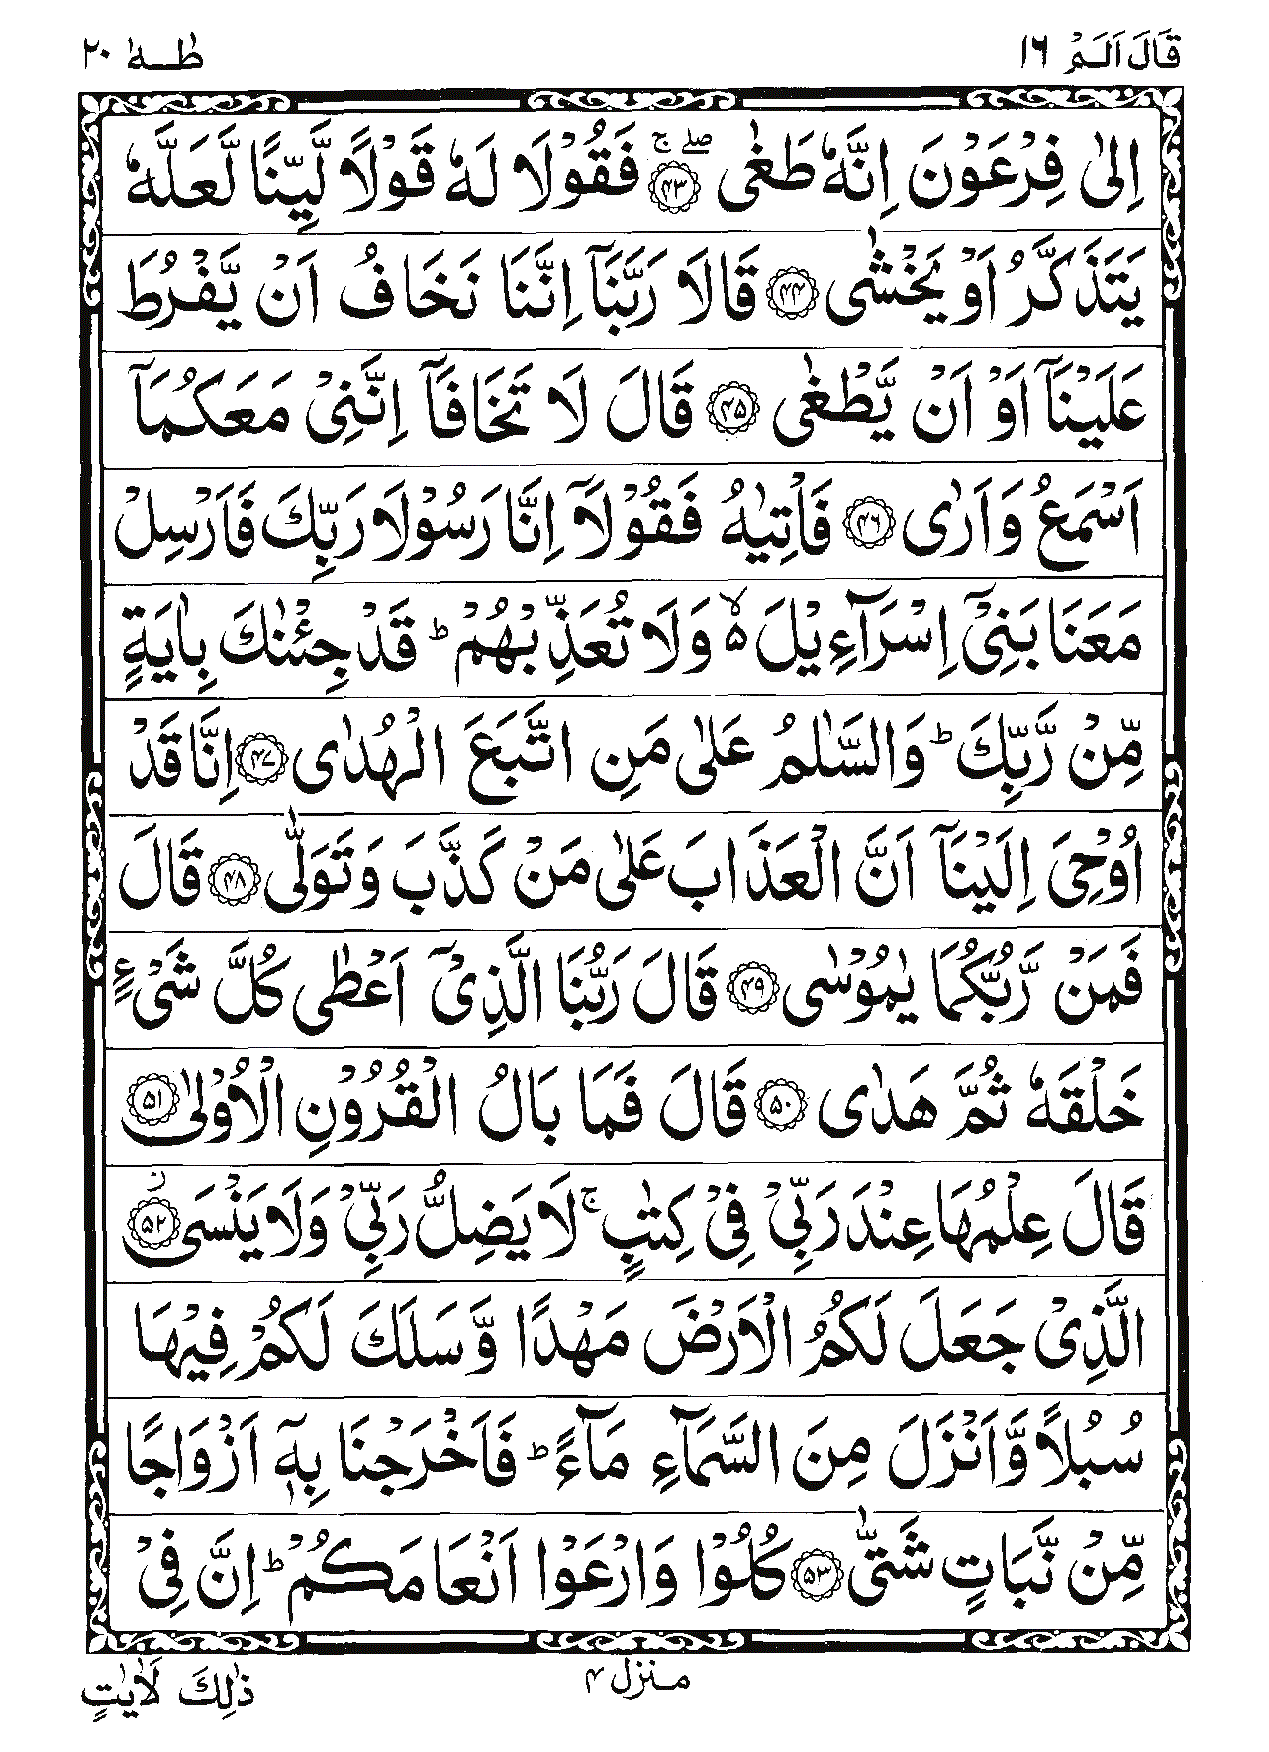 قَالَ اَلَمْ ١٦
طٰهٰ ٢٠
اِلٰى فِرْعَوْنَ اِنَّهٗ طَغٰى ۚۖ‏﴿۴۳﴾ فَقُوْلَا لَهٗ قَوْلًا لَّيِّنًا لَّعَلَّهٗ
يَتَذَكَّرُ اَوْ يَخْشٰى ﴿۴۴﴾ قَالَا رَبَّنَاۤ اِنَّنَا نَخَافُ اَنْ يَّفْرُطَ
عَلَيْنَاۤ اَوْ اَنْ يَّطْغٰى ﴿۴۵﴾ قَالَ لَا تَخَافَاۤ اِنَّنِىْ مَعَكُمَاۤ
اَسْمَعُ وَاَرٰى ﴿۴۶﴾ فَاْتِيٰهُ فَقُوْلَاۤ اِنَّا رَسُوْلَا رَبِّكَ فَاَرْسِلْ
مَعَنَا بَنِىْۤ اِسْرَآءِيْلَ ۵ۙ وَلَا تُعَذِّبْهُمْ ؕ قَدْ جِئْنٰكَ بِاٰيَةٍ
مِّنْ رَّبِّكَ ؕ وَالسَّلٰمُ عَلٰى مَنِ اتَّبَعَ الْهُدٰى ﴿۴۷﴾ اِنَّا قَدْ
اُوْحِىَ اِلَيْنَاۤ اَنَّ الْعَذَابَ عَلٰى مَنْ كَذَّبَ وَتَوَلّٰى ﴿۴۸﴾ قَالَ
فَمَنْ رَّبُّكُمَا يٰمُوْسٰى ﴿۴۹﴾ قَالَ رَبُّنَا الَّذِىْۤ اَعْطٰى كُلَّ شَىْءٍ
خَلْقَهٗ ثُمَّ هَدٰى ﴿۵۰﴾ قَالَ فَمَا بَالُ الْقُرُوْنِ الْاُوْلٰى ﴿۵۱﴾
قَالَ عِلْمُهَا عِنْدَ رَبِّىْ فِىْ كِتٰبٍ ۚ لَا يَضِلُّ رَبِّىْ وَلَا يَنْسَى ۫ ﴿۵۲﴾
الَّذِىْ جَعَلَ لَكُمُ الْاَرْضَ مَهْدًا وَّسَلَكَ لَكُمْ فِيْهَا
سُبُلًا وَّاَنْزَلَ مِنَ السَّمَآءِ مَآءً ؕ فَاَخْرَجْنَا بِهٖۤ اَزْوَاجًا
مِّنْ نَّبَاتٍ شَتّٰى ﴿۵۳﴾ كُلُوْا وَارْعَوْا اَنْعَامَكُمْ ؕ اِنَّ فِىْ
منزل ۴
ذٰلِكَ لَاٰيٰتٍ